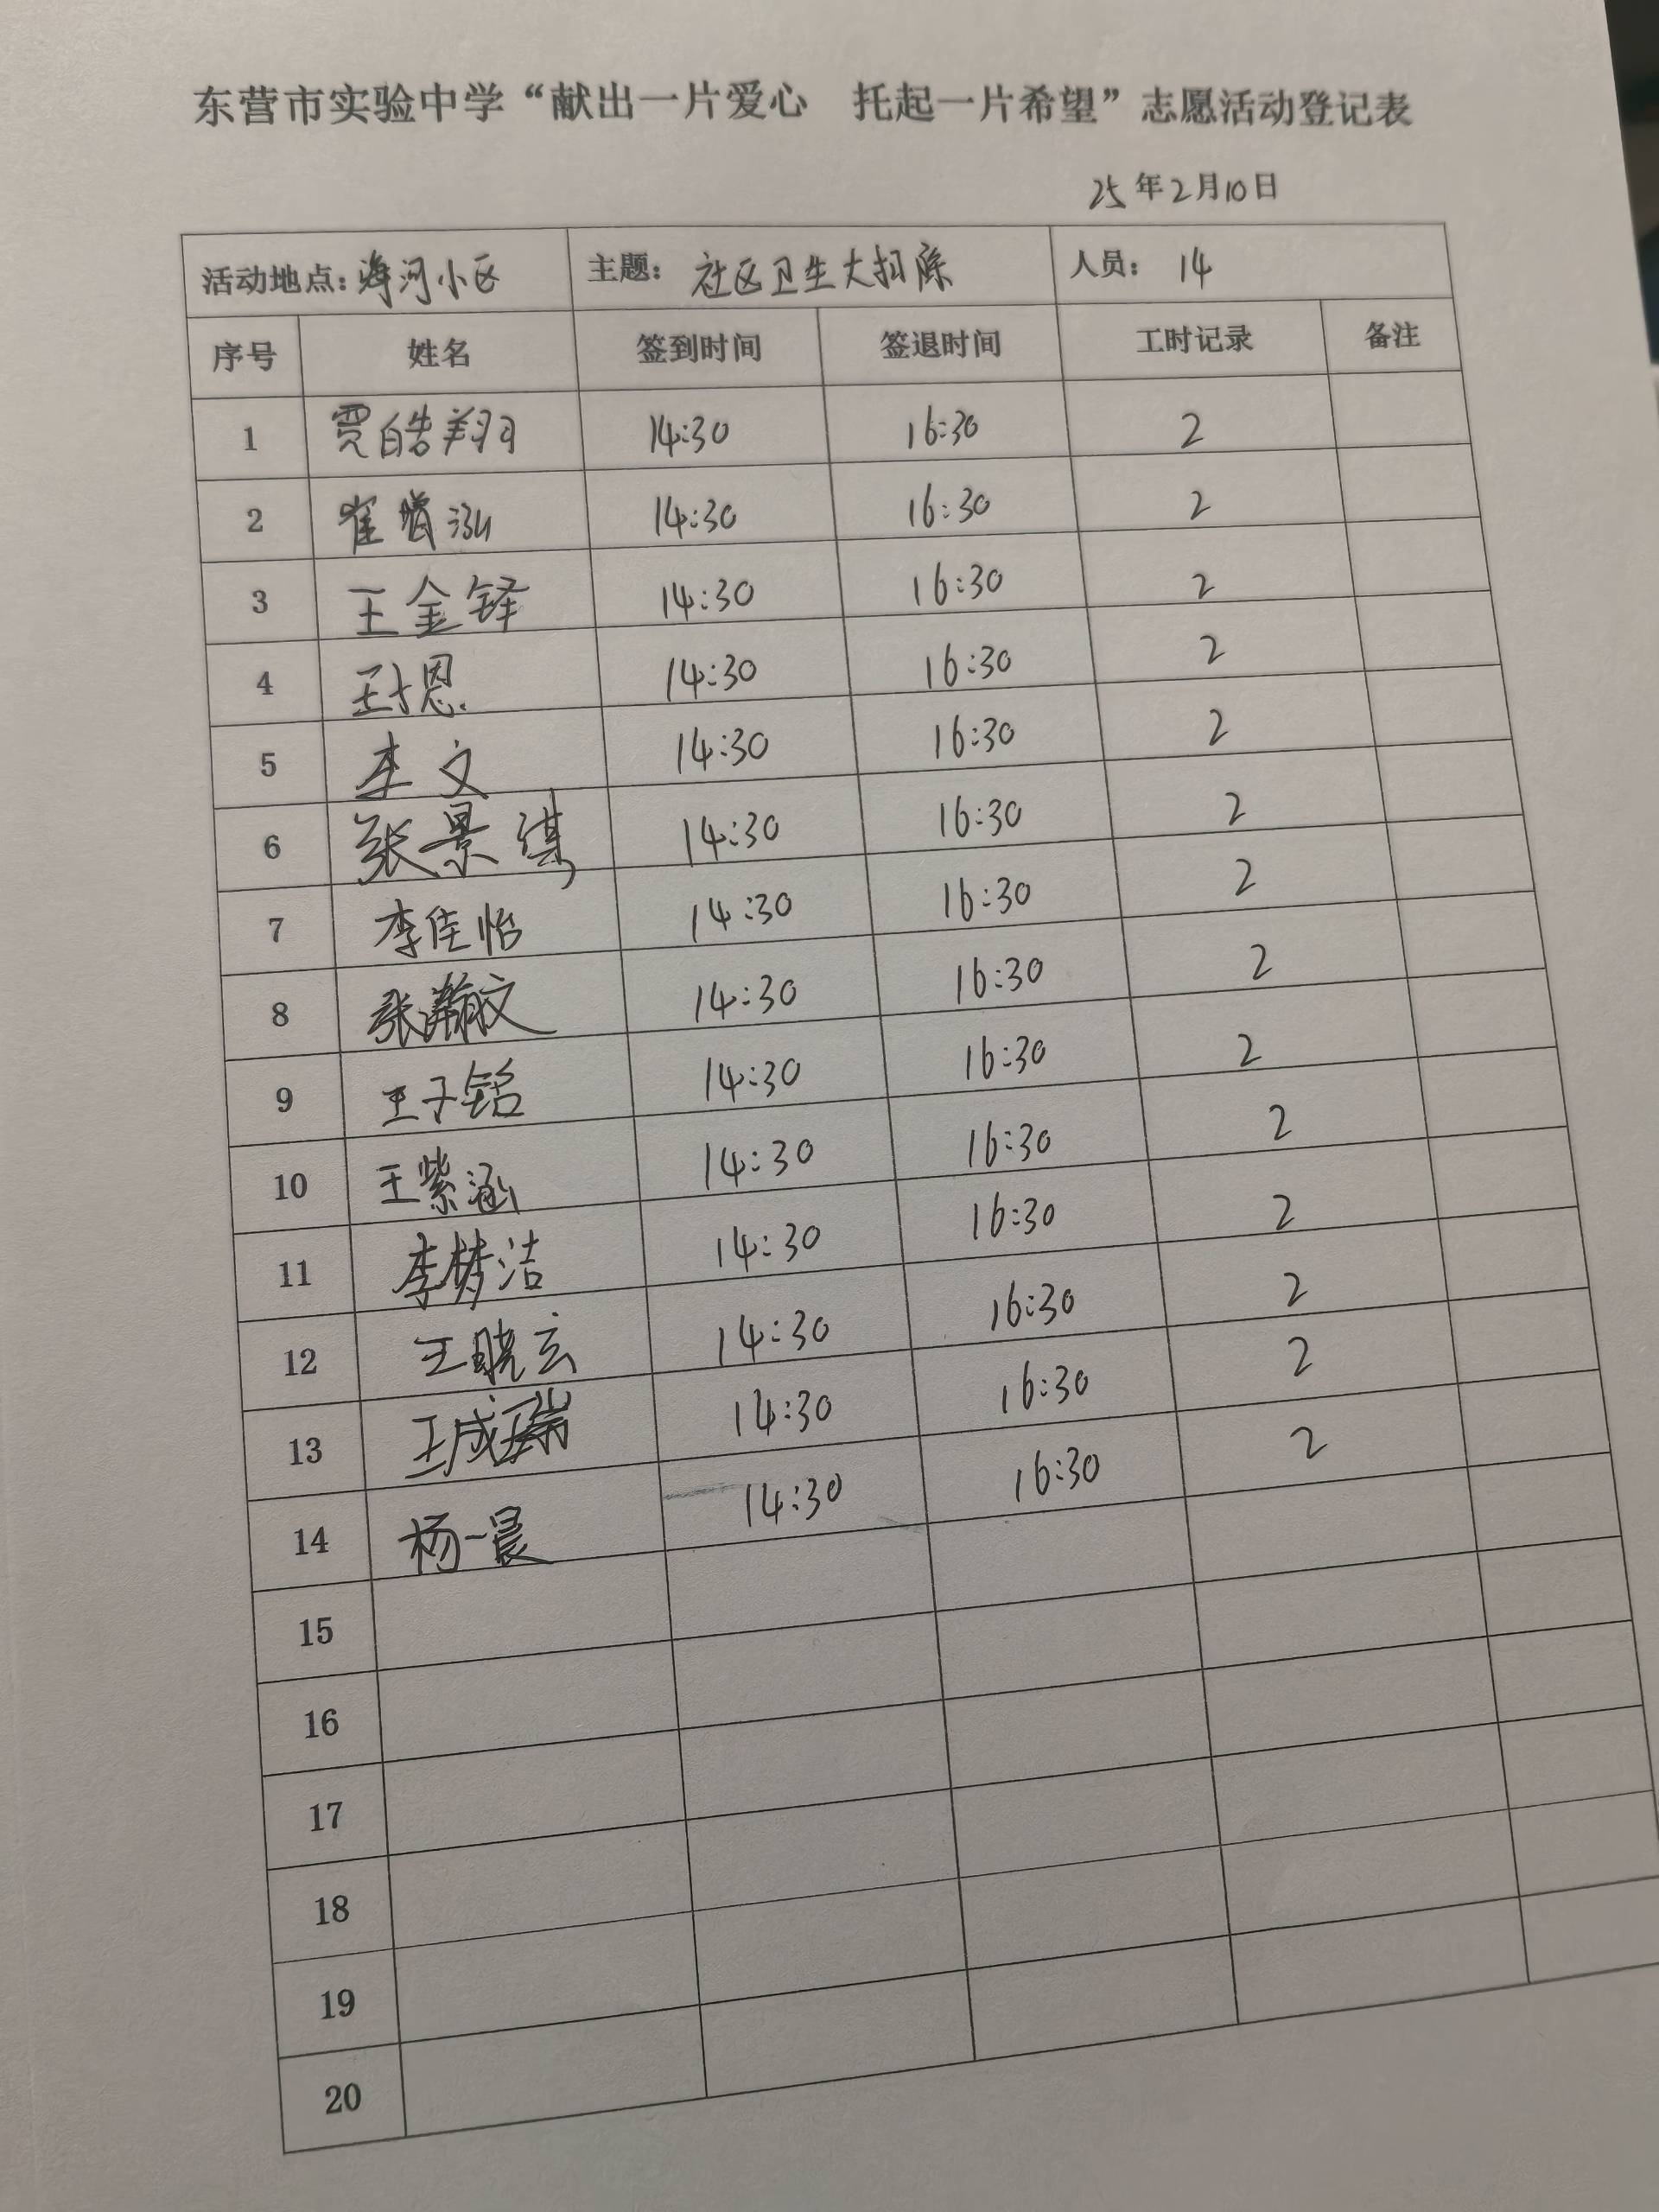 东营市实验中学“献出一片爱心 托起一片希望”志愿活动登记表
25年2月10日
活动地点：海河小区 主题：社区卫生大扫除 人员：14
序号 姓名 签到时间 签退时间 工时记录 备注
1 贾皓翔 14:30 16:30 2
2 崔 泓 14:30 16:30 2
3 王金铎 14:30 16:30 2
4 14:30 16:30 2
5 李文 14:30 16:30 2
6 张景 14:30 16:30 2
7 李佳怡 14:30 16:30 2
8 张瀚文 14:30 16:30 2
9 王子铭 14:30 16:30 2
10 王紫涵 14:30 16:30 2
11 李梦洁 14:30 16:30 2
12 王晓玄 14:30 16:30 2
13 王成瑞 14:30 16:30 2
14 杨一晨 14:30 16:30 2
15
16
17
18
19
20